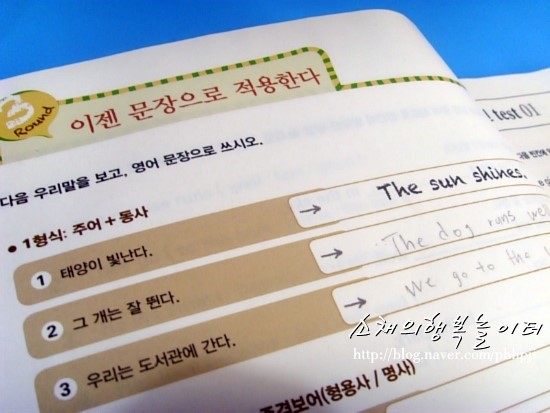 3 Round
이젠 문장으로 적용한다
! test 01
다음 우리말을 보고, 영어 문장으로 쓰시오.
• 1형식: 주어 + 동사
1 태양이 빛난다. → The sun shines.
2 그 개는 잘 뛴다. → The dog runs well
3 우리는 도서관에 간다. → We go to the
소채의행복놀이터
http://blog.naver.com/
(형용사 / 명사)